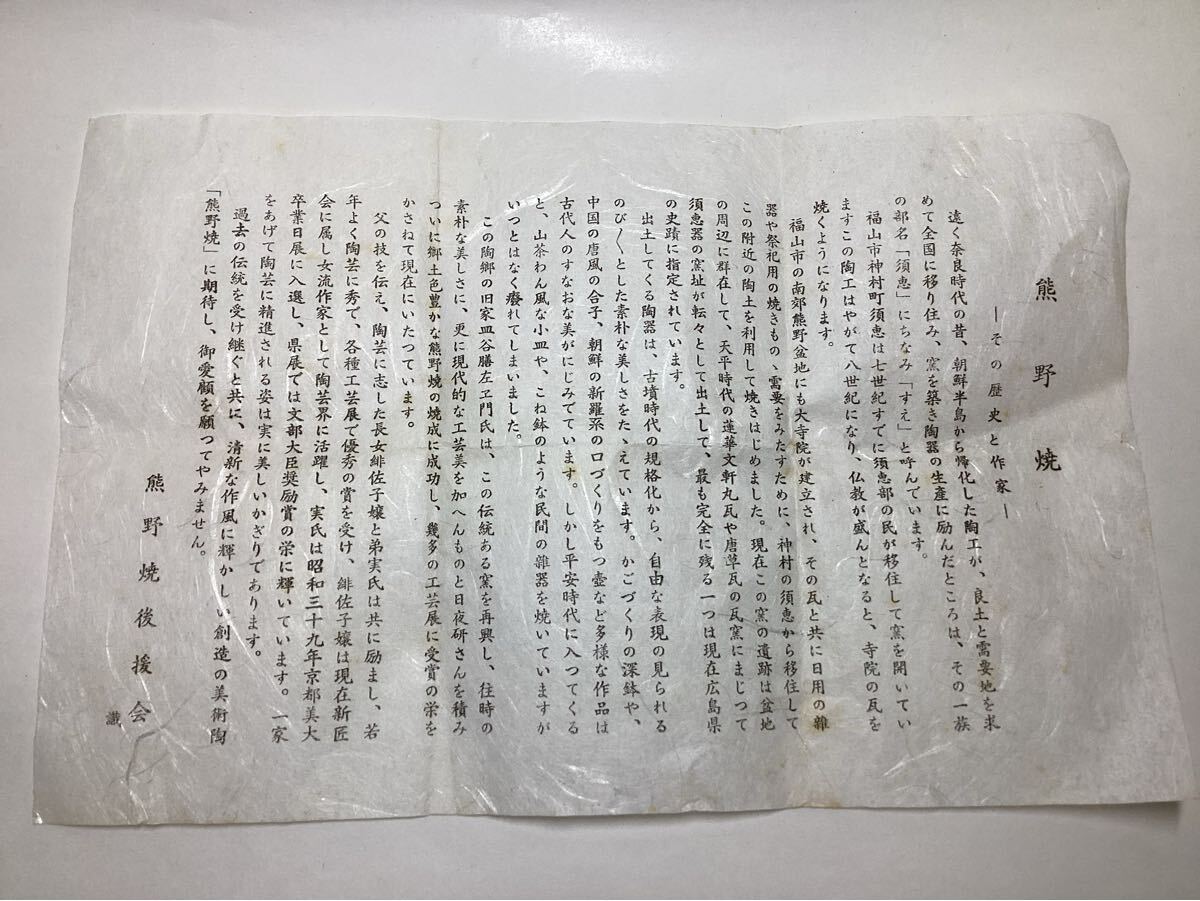 熊野焼
―その歴史と作家―
遠く奈良時代の昔、朝鮮半島から帰化した陶工が、良土と需要地を求
めて全国に移り住み、窯を築き陶器の生産に励んだところは、その一族
の部名「須恵」にちなみ「すえ」と呼んでいます。
福山市神村町須恵は七世紀すでに須恵部の民が移住して窯を開いてい
ますこの陶工はやがて八世紀になり、仏教が盛んとなると、寺院の瓦を
焼くようになります。
福山市の南郊熊野盆地にも大寺院が建立され、その瓦と共に日用の雑
器や祭祀用の焼きものゝ需要をみたすために、神村の須恵から移住して
この附近の陶土を利用して焼きはじめました。現在この窯の遺跡は盆地
の周辺に群在して、天平時代の蓮華文軒丸瓦や唐草瓦の瓦窯にまじつて
須恵器の窯址が転々として出土して、最も完全に残る一つは現在広島県
の史蹟に指定されています。
出土してくる陶器は、古墳時代の規格化から、自由な表現の見られる
のび〱とした素朴な美しさをたゝえています。かごづくりの深鉢や、
中国の唐風の合子、朝鮮の新羅系の口づくりをもつ壺など多様な作品は
古代人のすなおな美がにじみでています。しかし平安時代に入つてくる
と、山茶わん風な小皿や、こね鉢のような民間の雑器を焼いていますが
いつとはなく廢れてしまいました。
この陶郷の旧家皿谷勝左ヱ門氏は、この伝統ある窯を再興し、往時の
素朴な美しさに、更に現代的な工芸美を加へんものと日夜研さんを積み
ついに郷土色豊かな熊野焼の焼成に成功し、幾多の工芸展に受賞の栄を
かさねて現在にいたつています。
父の技を伝え、陶芸に志した長女緋佐子嬢と弟実氏は共に励まし、若
年よく陶芸に秀で、各種工芸展で優秀の賞を受け、緋佐子嬢は現在新匠
会に属し女流作家として陶芸界に活躍し、実氏は昭和三十九年京都美大
卒業日展に入選し、県展では文部大臣奨励賞の栄に輝いています。一家
をあげて陶芸に精進される姿は実に美しいかぎりであります。
過去の伝統を受け継ぐと共に、清新な作風に輝かしい創造の美術陶
「熊野焼」に期待し、御愛顧を願つてやみません。
熊野焼後援会
識